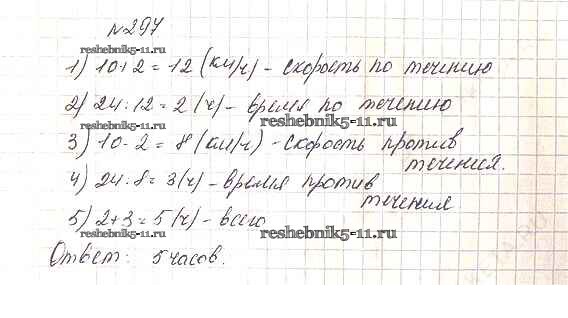 №297
reshebnik5-11.ru
1) 10+2=12 (км/ч) - скорость по течению
2) 24:12=2 (ч) - время по течению
reshebnik5-11.ru reshebnik5-11.ru
3) 10-2=8 (км/ч) - скорость против
течения.
4) 24:8=3 (ч) - время против
течения
5) 2+3=5 (ч) - всего
reshebnik5-11.ru reshebnik5-11.ru
Ответ: 5 часов.